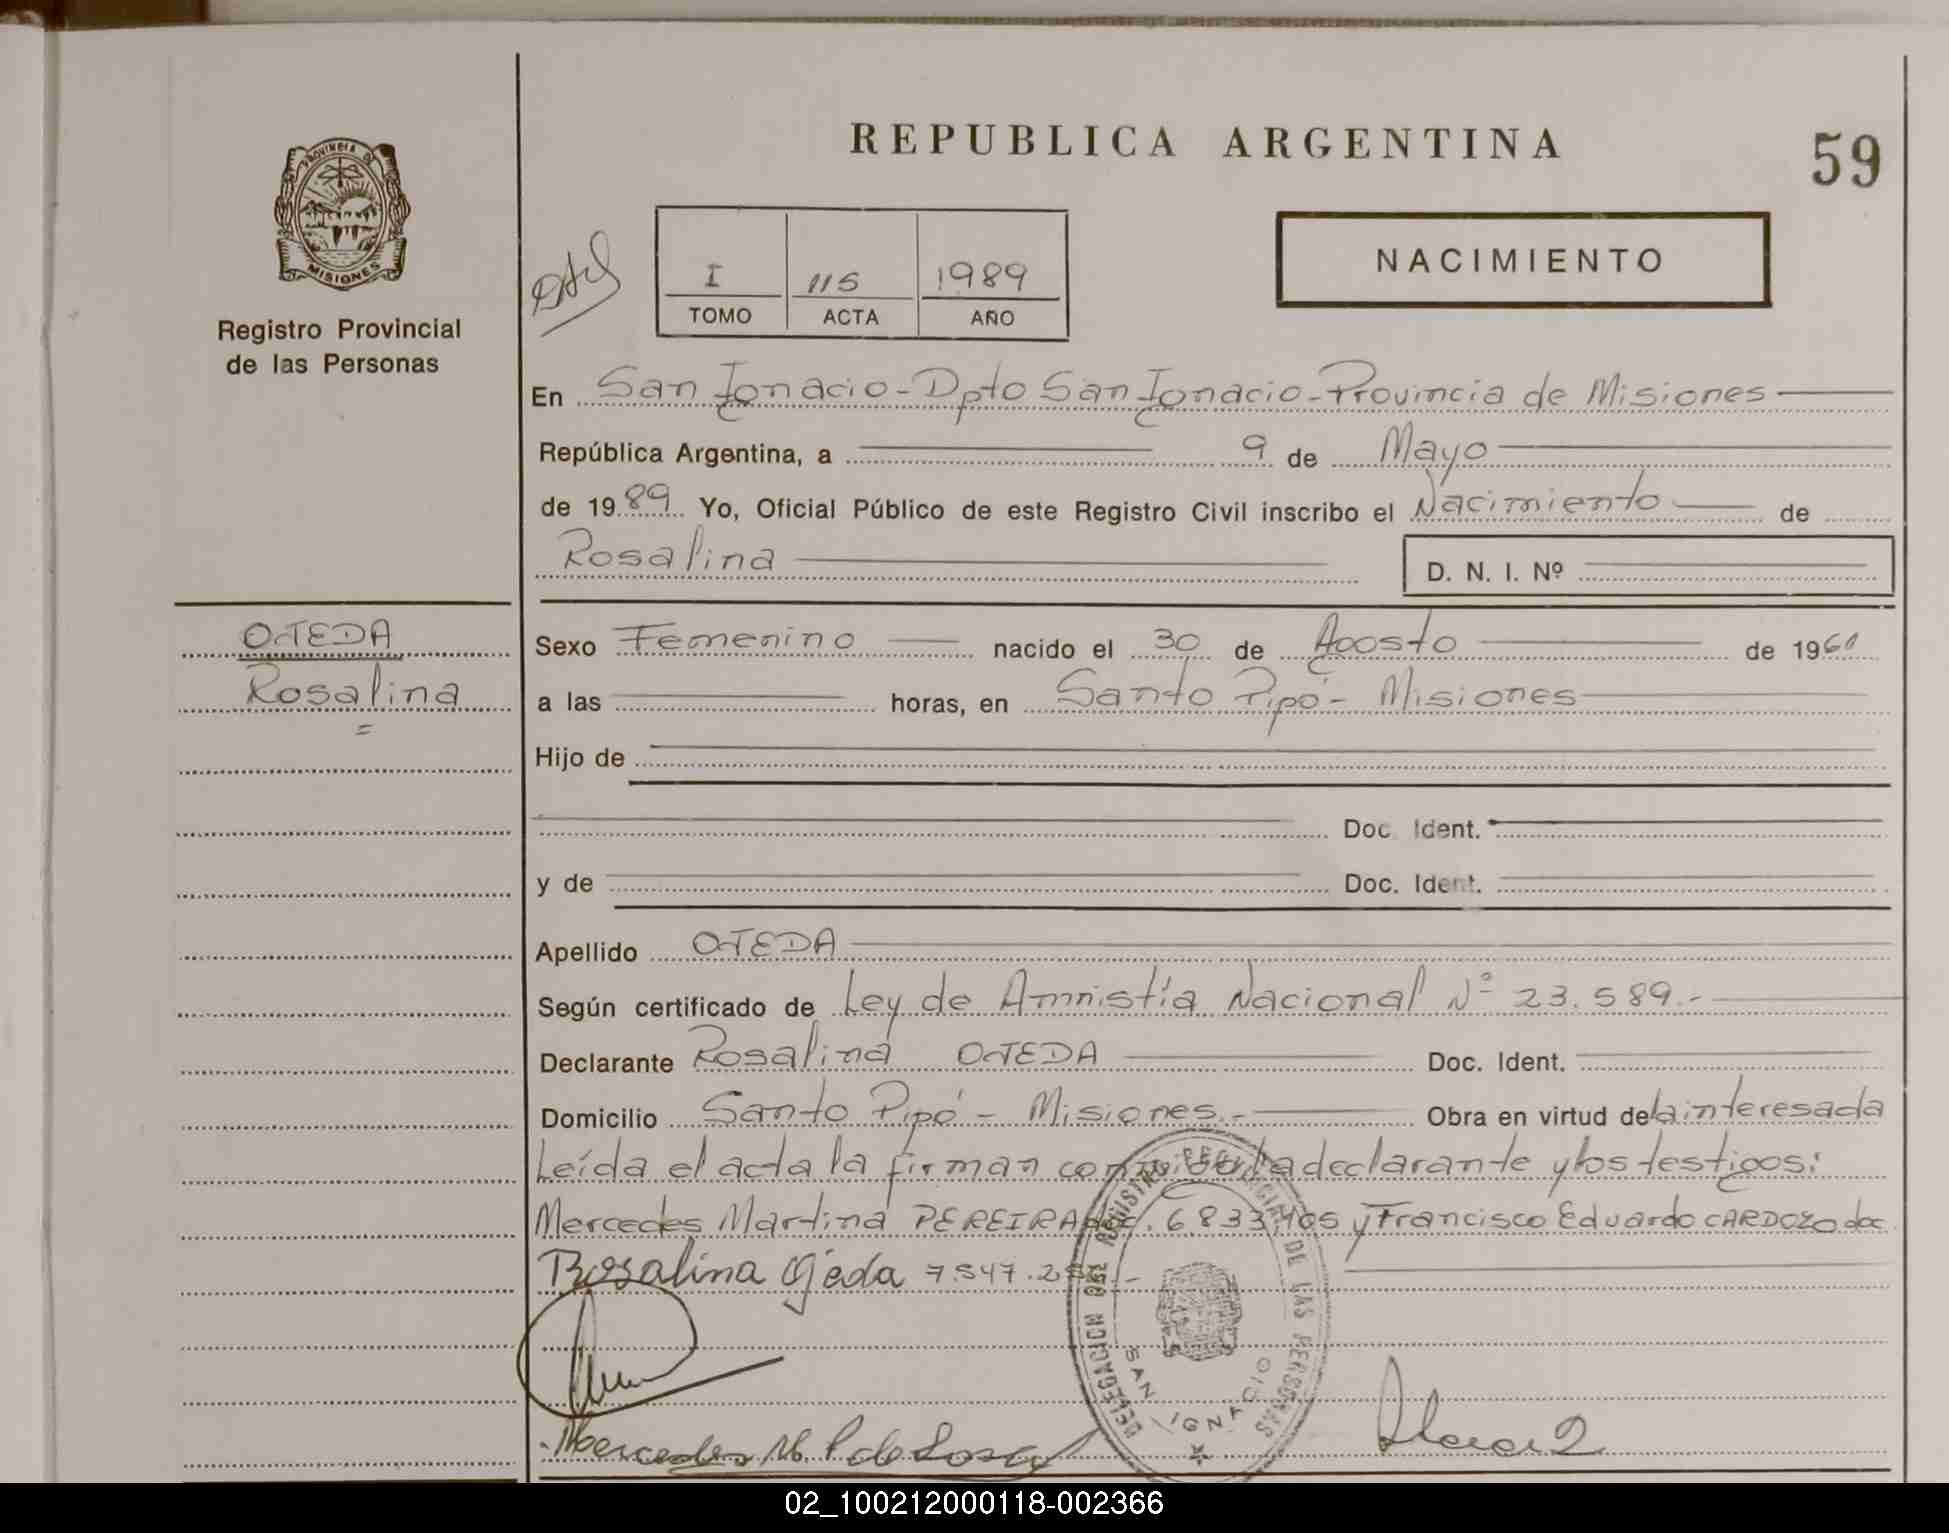 REPUBLICA ARGENTINA
59
PROVINCIA DE
MISIONES
Registro Provincial
de las Personas
I 115 1989
TOMO ACTA AÑO
NACIMIENTO
En San Ignacio - Dpto San Ignacio - Provincia de Misiones
República Argentina, a 9 de Mayo
de 1989 Yo, Oficial Público de este Registro Civil inscribo el Nacimiento de
Rosalina D. N. I. Nº
OJEDA
Rosalina
Sexo Femenino nacido el 30 de Agosto de 1960
a las horas, en Santo Pipó - Misiones
Hijo de
Doc. Ident.
y de Doc. Ident.
Apellido OJEDA
Según certificado de Ley de Amnistía Nacional Nº 23.589.-
Declarante Rosalina OJEDA Doc. Ident.
Domicilio Santo Pipó - Misiones.- Obra en virtud de la interesada
Leída el acta la firman la declarante y los testigos:
Mercedes Martina PEREIRA 6.833. y Francisco Eduardo CARDOZO doc.
Rosalina Ojeda 7.547.2
Mercedes M. P de Sosa
DELEGACION DEL REGISTRO PROVINCIAL DE LAS PERSONAS
SAN IGNACIO
02_100212000118-002366